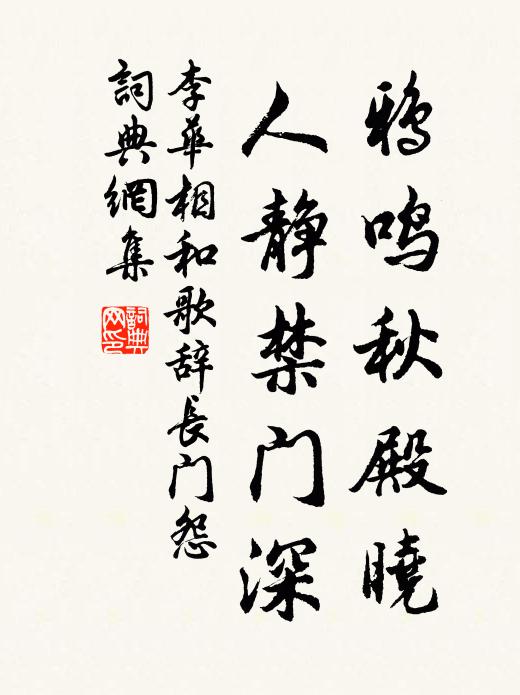 鸦鸣秋殿曉
人静禁门深
李華相和歌辞長门怨
詞典網集
詞典网印